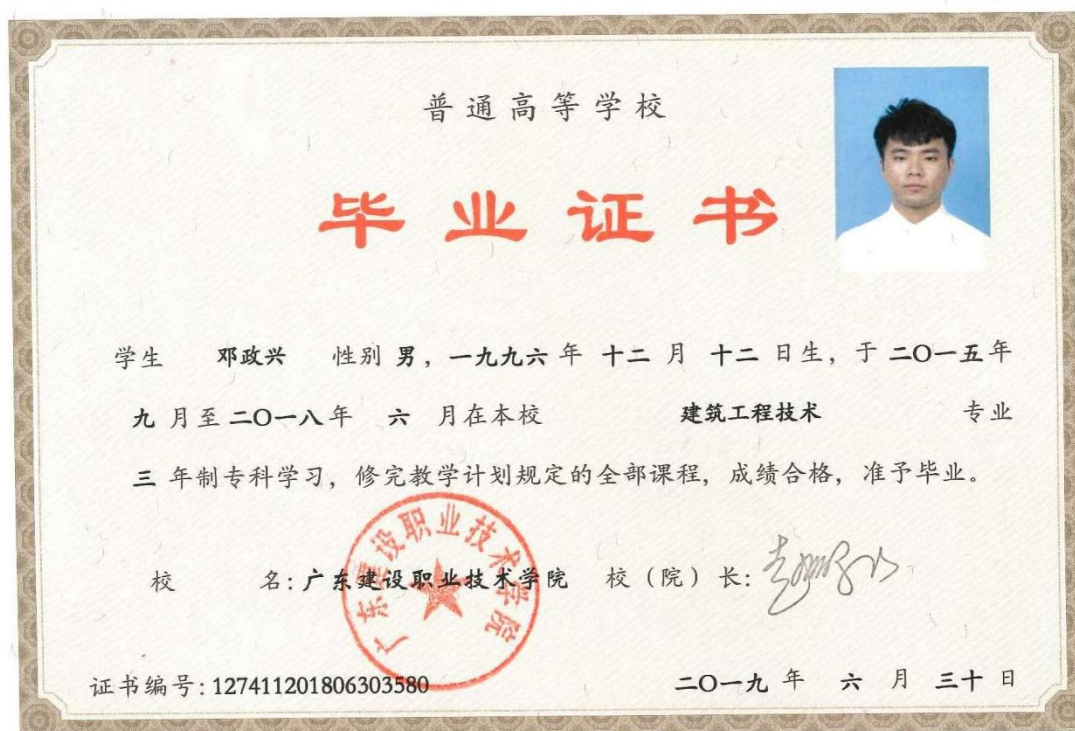 普通高等学校
毕业证书
学生 邓政兴 性别 男，一九九六 年 十二 月 十二 日生，于 二〇一五 年
九 月至 二〇一八 年 六 月在本校 建筑工程技术 专业
三 年制专科学习，修完教学计划规定的全部课程，成绩合格，准予毕业。
广东建设职业技术学院
校 名：广东建设职业技术学院 校（院）长：
证书编号：127411201806303580 二〇一九 年 六 月 三十 日